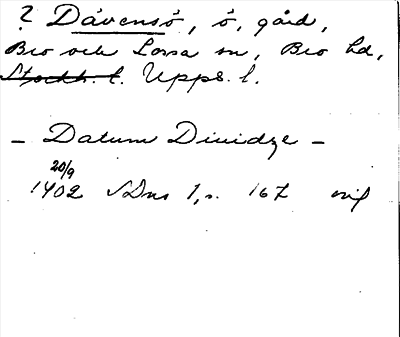 ? Dåvensö, ö, gård,
Bro och Lossa sn, Bro hd,
Stockh. l. Upps. l.
- Datum Diuidzø -
20/9
1402 SDns 1, s. 167 orig